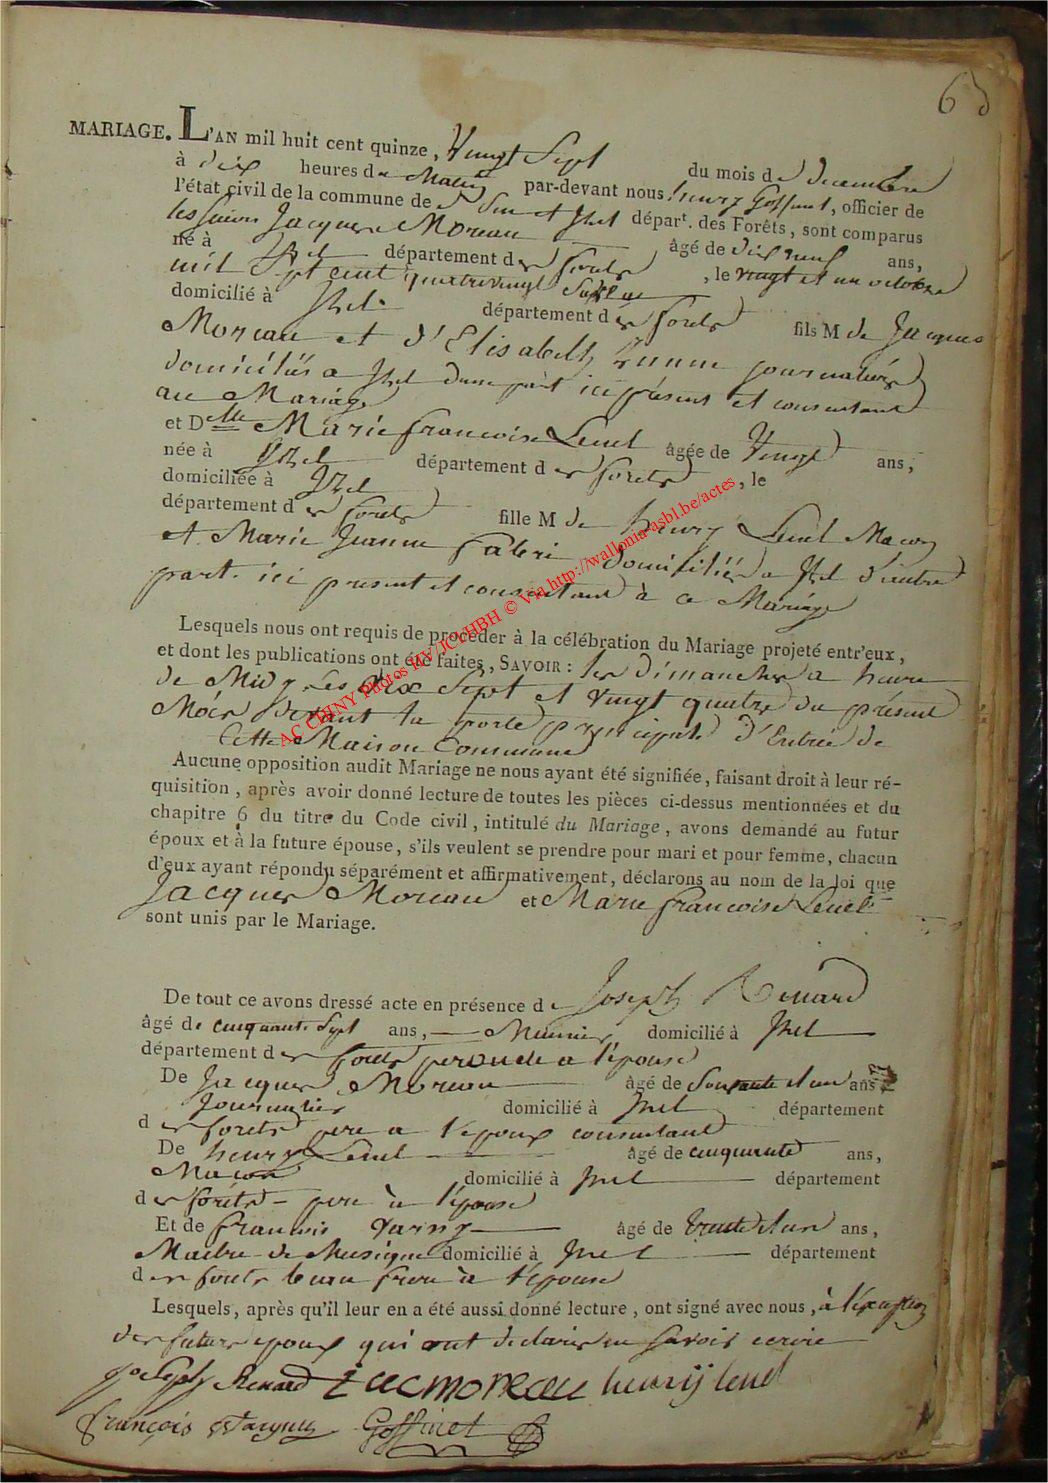 63
MARIAGE. L'AN mil huit cent quinze, Vingt Sept du mois de decembre
à dix heures du Matin par-devant nous henry Goffinet, officier de
l'état civil de la commune de et Izel départ. des Forêts, sont comparus
les Sieurs Jacques Moreau âgé de dix neuf ans,
né à Izel département des forets, le vingt et un octobre
mil Sept cent quatre vingt
domicilié à Izel département des forets fils M de Jacques
Moreau et d'Elisabeth journaliers
domiciliés a Izel dune part ici présent et consentant
au Mariage
et Delle Marie francoise Leuel âgée de Vingt ans,
née à Izel département des forets, le
domiciliée à Izel
département des forets fille M de henry Leuel Macon
et Marie Jeanne domiciliés a Izel d'autre
part ici present et consentant à ce Mariage
Lesquels nous ont requis de procéder à la célébration du Mariage projeté entr'eux,
et dont les publications ont été faites, SAVOIR : les dimanches a heure
de Midy, Les dix Sept et vingt quatre du présent
Mois devant la porte principale d'Entrée de
Cette Maison Commune
Aucune opposition audit Mariage ne nous ayant été signifiée, faisant droit à leur ré-
quisition, après avoir donné lecture de toutes les pièces ci-dessus mentionnées et du
chapitre 6 du titre du Code civil, intitulé du Mariage, avons demandé au futur
époux et à la future épouse, s'ils veulent se prendre pour mari et pour femme, chacun
d'eux ayant répondu séparément et affirmativement, déclarons au nom de la loi que
Jacques Moreau et Marie francoise Leuel
sont unis par le Mariage.
De tout ce avons dressé acte en présence de Joseph Renard
âgé de cinquante Sept ans, Meunier, domicilié à Izel
département des forets a l'épouse
De Jacques Moreau âgé de Soixante et un ans
Journalier domicilié à Izel département
des forets pere a l'epoux consentant
De henry Leuel âgé de cinquante ans,
Macon domicilié à Izel département
des forets pere à l'épouse
Et de francois âgé de trente et un ans,
Maitre de Musique domicilié à Izel département
des forets beau frere à l'épouse
Lesquels, après qu'il leur en a été aussi donné lecture, ont signé avec nous, à l'exception
des futurs epoux qui ont declarés ne savoir ecrire
joseph Renard Jacmoreau henrij leuel
françois Goffinet
AC CHINY Photos HV/JCV/HBH © Via http://wallonia-asbl.be/actes